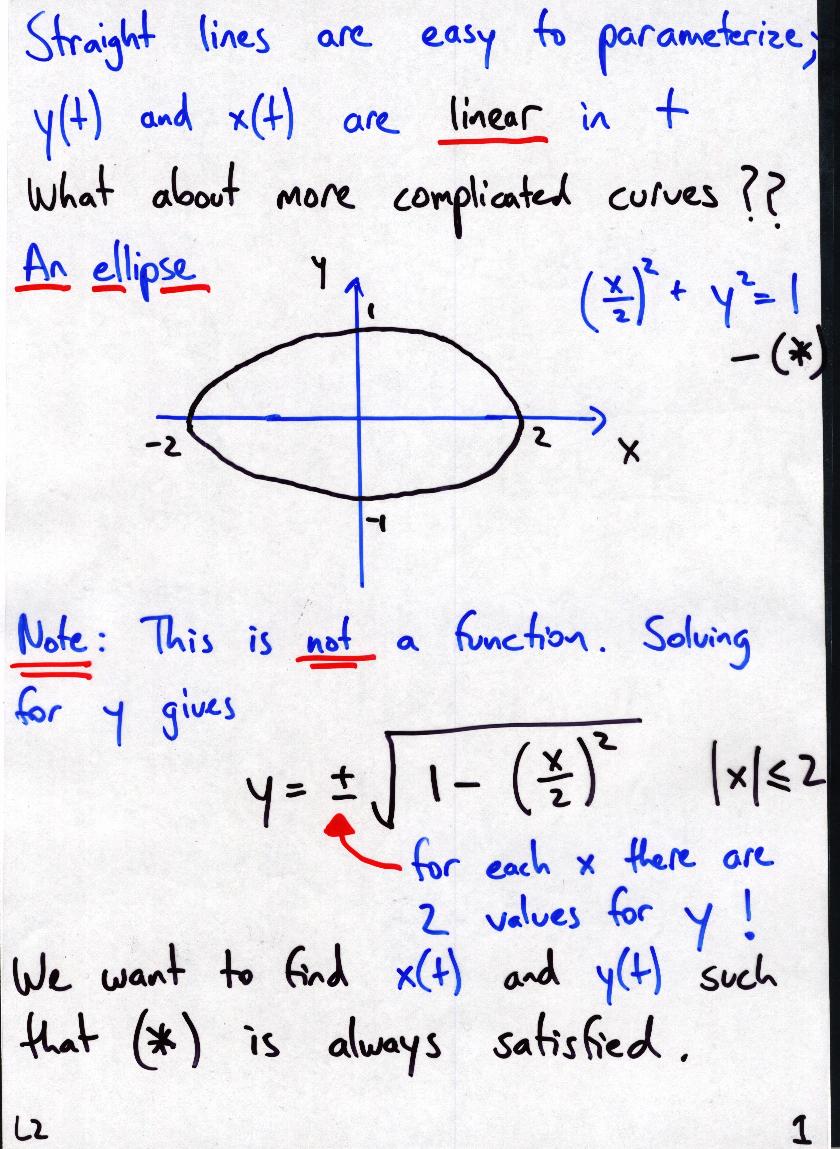 Straight lines are easy to parameterize;
y(t) and x(t) are linear in t
What about more complicated curves ??
An ellipse
y
(x/2)² + y² = 1
1
— (*)
-2
2
x
-1
Note: This is not a function. Solving
for y gives
y = ± √(1 - (x/2)²) |x| ≤ 2
for each x there are
2 values for y !
We want to find x(t) and y(t) such
that (*) is always satisfied.
L2 1